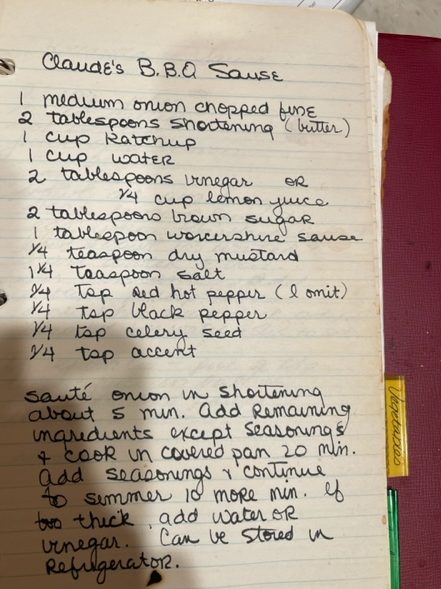 Claude's B.B.Q Sause
1 medium onion chopped fine
2 tablespoons shortening (butter)
1 cup Katchup
1 cup water
2 tablespoons vinegar OR
1/4 cup lemon juice
2 tablespoons brown sugar
1 tablespoon worcershire sause
1/4 teaspoon dry mustard
1 1/4 Teaspoon salt
1/4 Tsp red hot pepper (I omit)
1/4 tsp black pepper
1/4 tsp celery seed
1/4 tsp accent
Sauté onion in shortening
about 5 min. add remaining
ingredients except seasonings
& cook in covered pan 20 min.
add seasonings & continue
to simmer 10 more min. If
too thick, add water OR
vinegar. Can be stored in
Refrigerator.
Vegetables